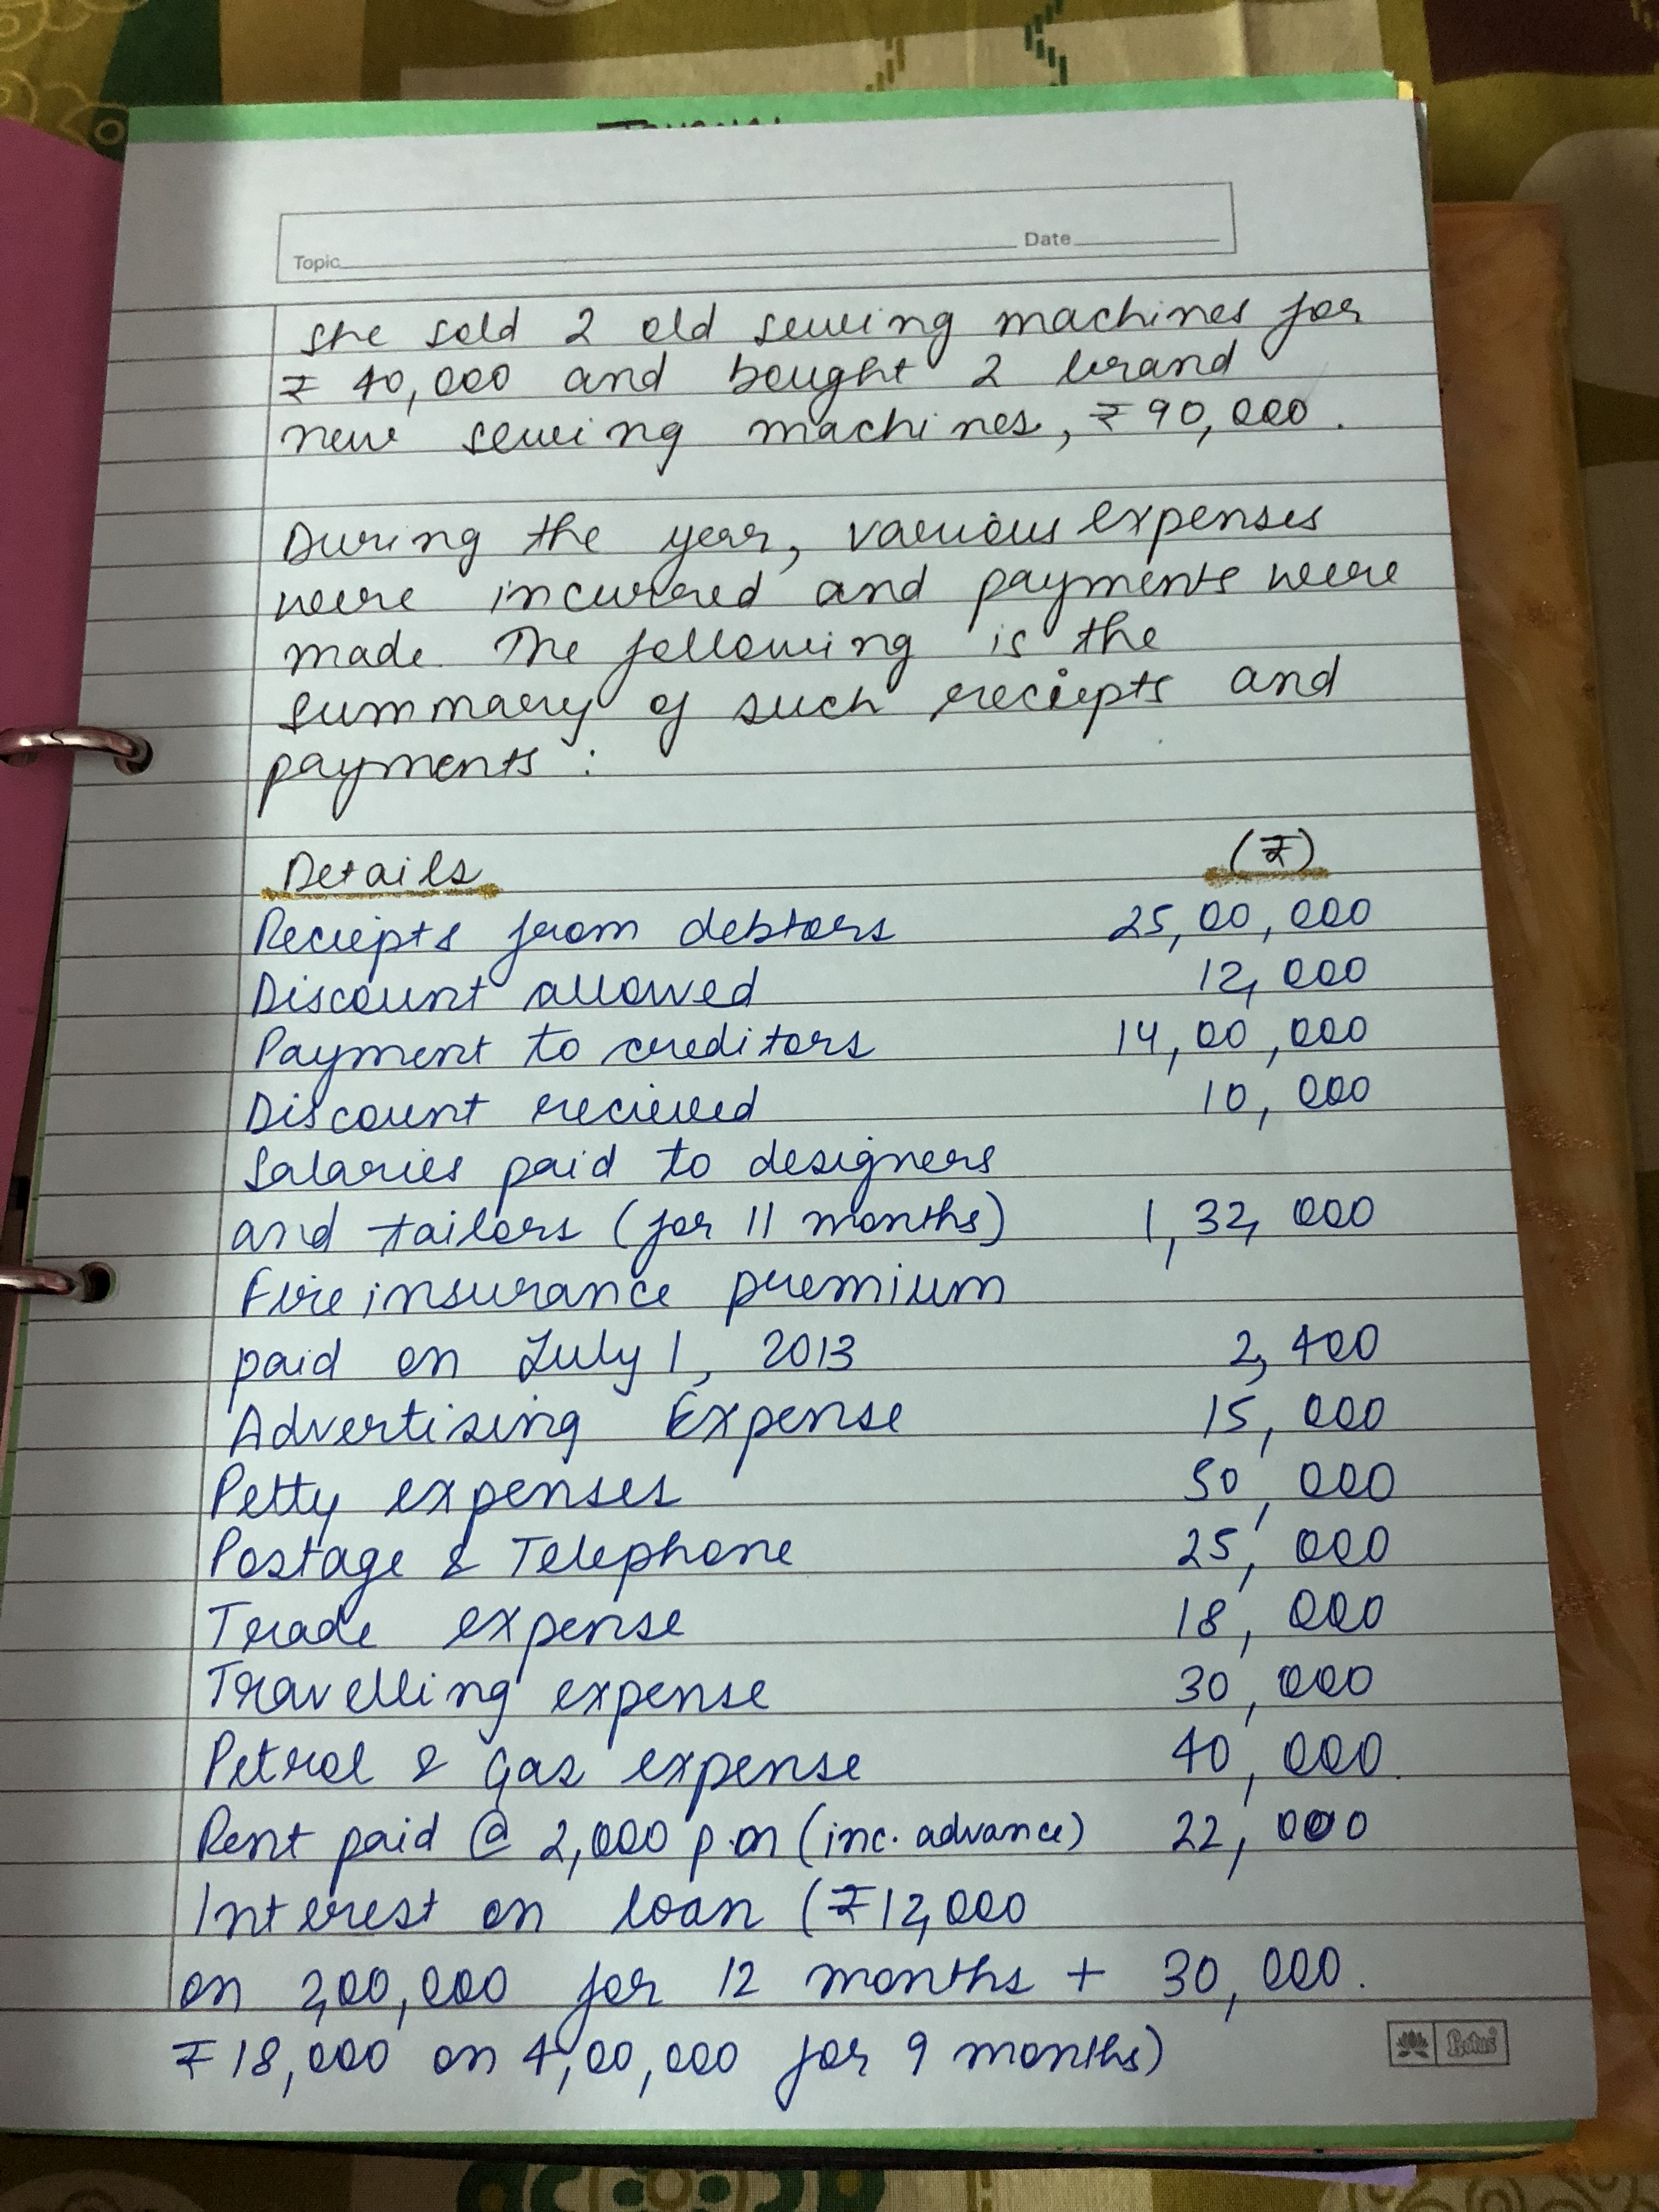 Topic Date
She sold 2 old sewing machines for
₹ 40,000 and bought 2 brand
new sewing machines, ₹ 90,000.
During the year, various expenses
were incurred and payments were
made. The following is the
summary of such reciepts and
payments :
Details (₹)
Reciepts from debtors 25,00,000
Discount allowed 12,000
Payment to creditors 14,00,000
Discount recieved 10,000
Salaries paid to designers
and tailors (for 11 months) 1,32,000
Fire insurance premium
paid on July 1, 2013 2,400
Advertising Expense 15,000
Petty expenses 50,000
Postage & Telephone 25,000
Trade expense 18,000
Travelling expense 30,000
Petrol & Gas expense 40,000.
Rent paid @ 2,000 p.m (inc. advance) 22,000
Interest on loan (₹12,000
on 2,00,000 for 12 months + 30,000.
₹18,000 on 4,00,000 for 9 months)
Lotus